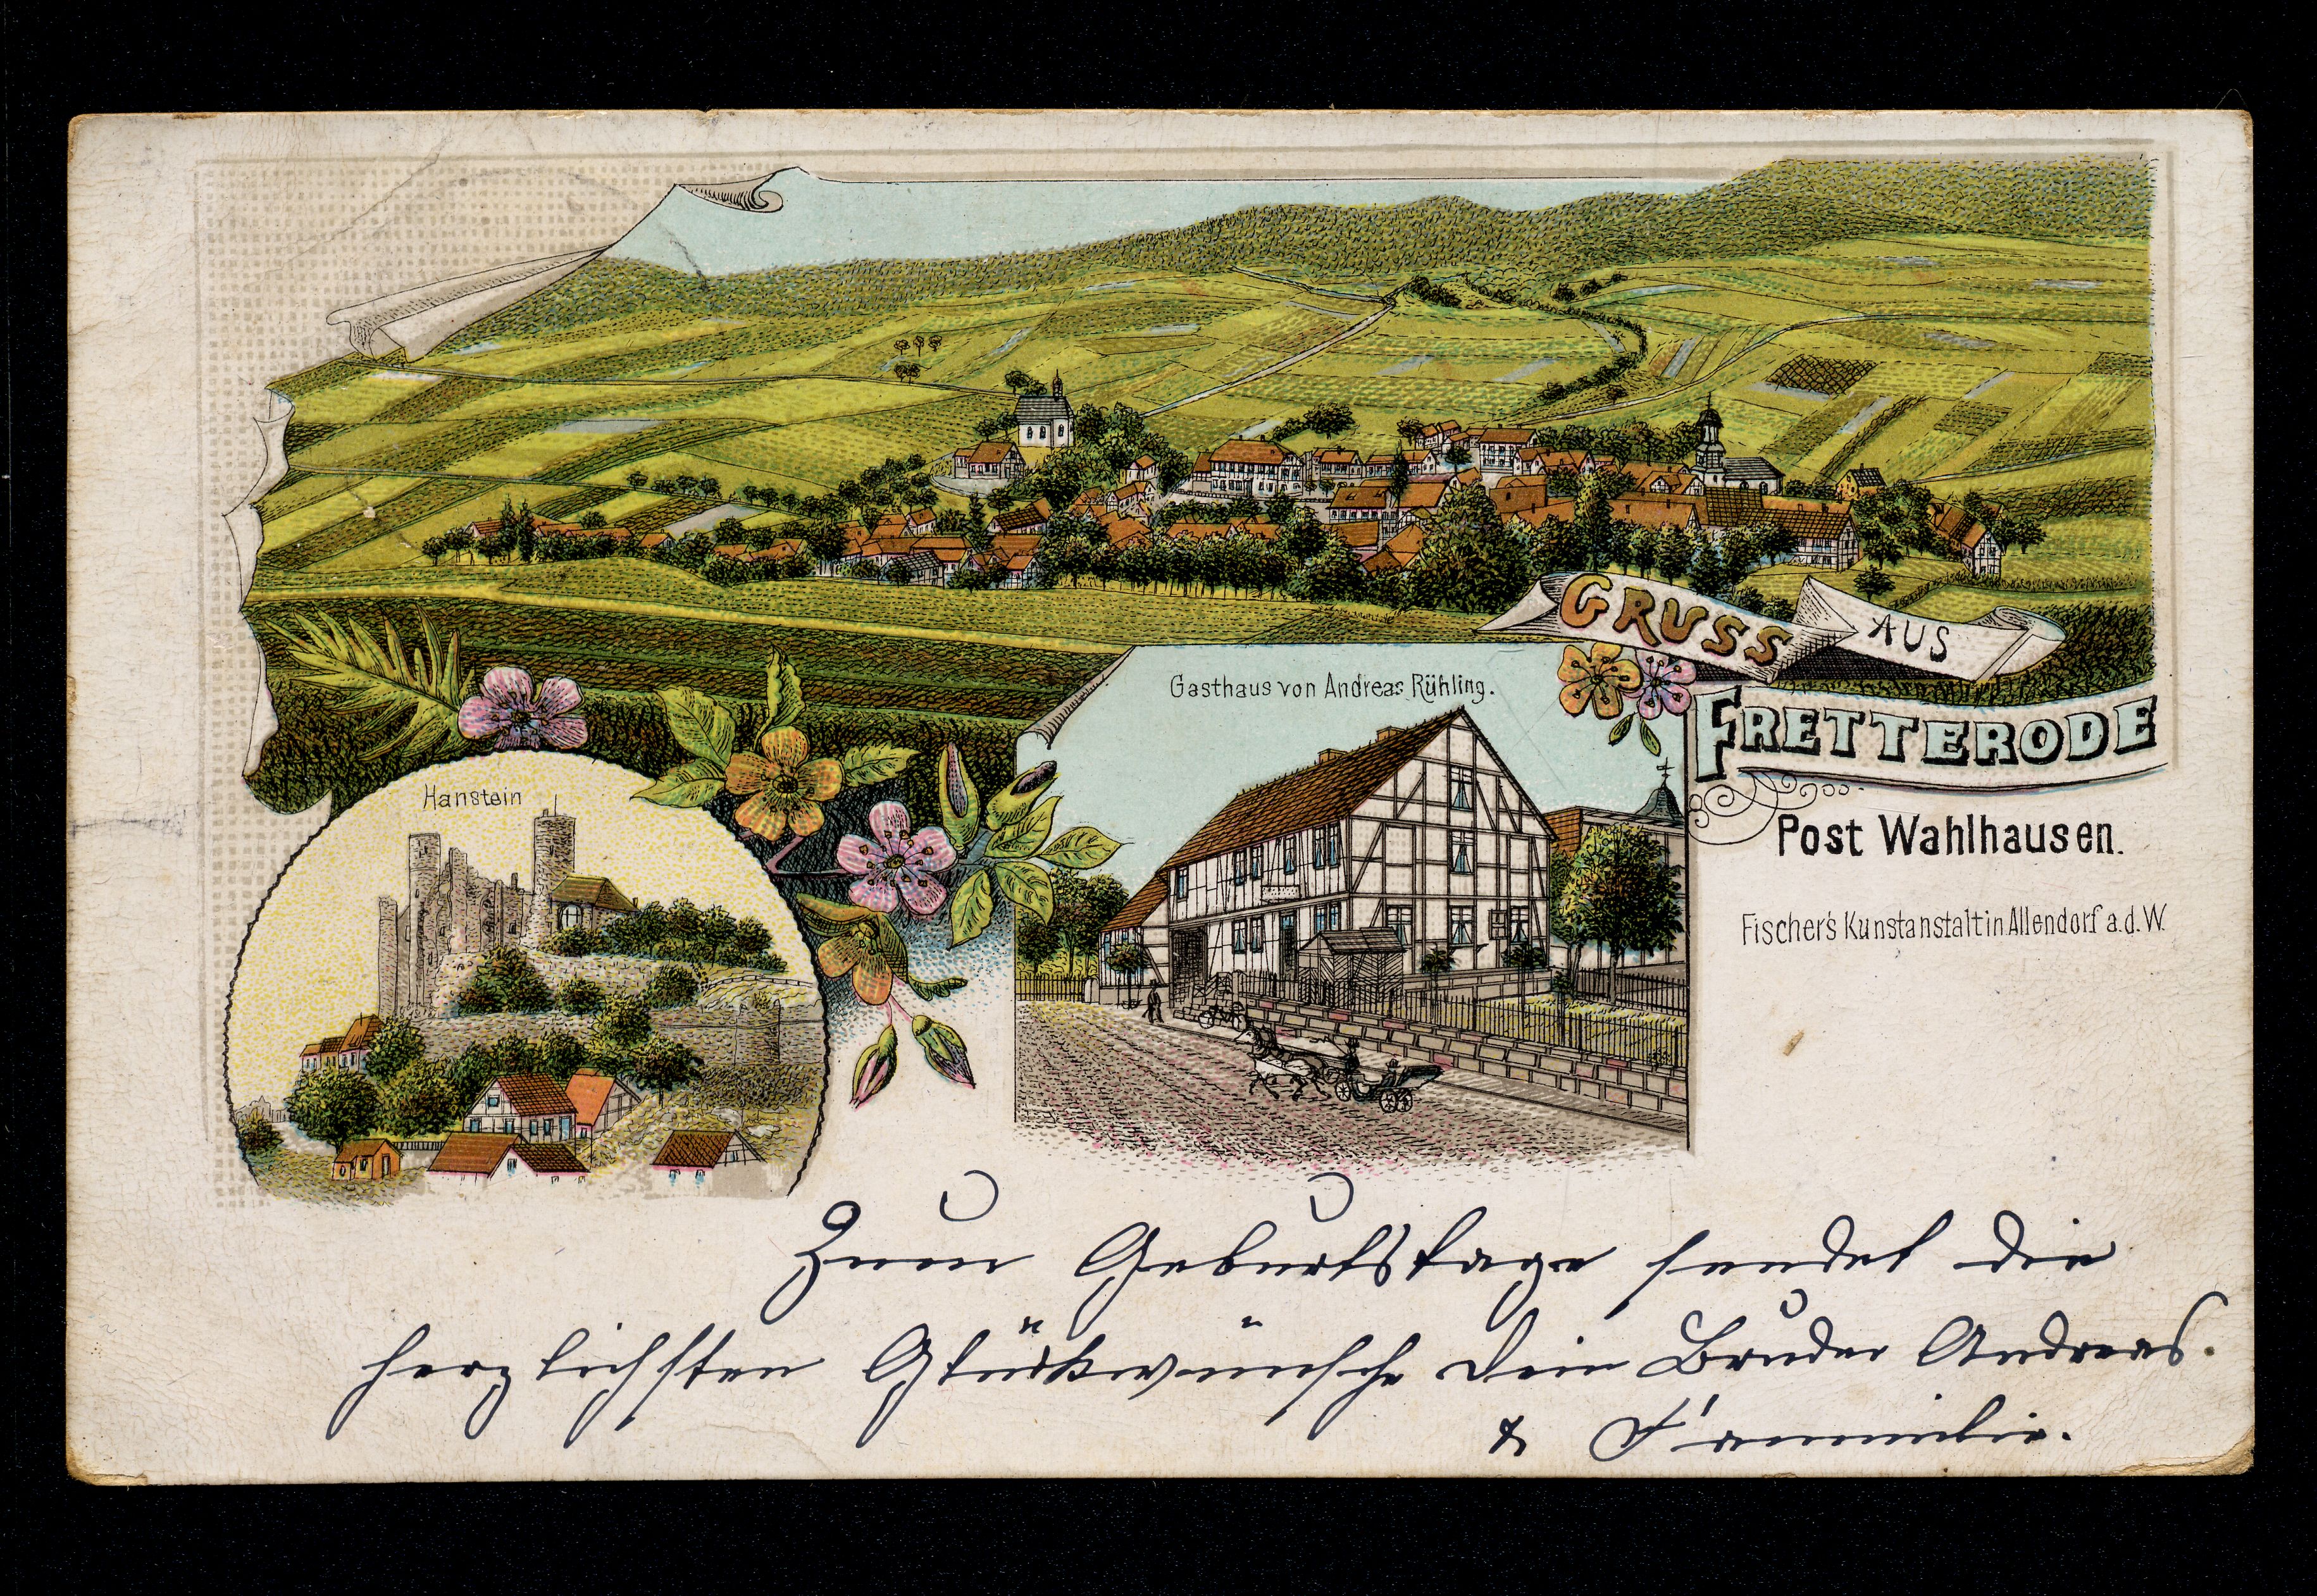 GRUSS AUS
FRETTERODE
Post Wahlhausen.
Fischer's Kunstanstalt in Allendorf a.d.W.
Gasthaus von Andreas Rühling.
Hanstein
Zum Geburtstage sendet die
herzlichsten Glückwünsche dein Bruder Andreas.
& Familie.